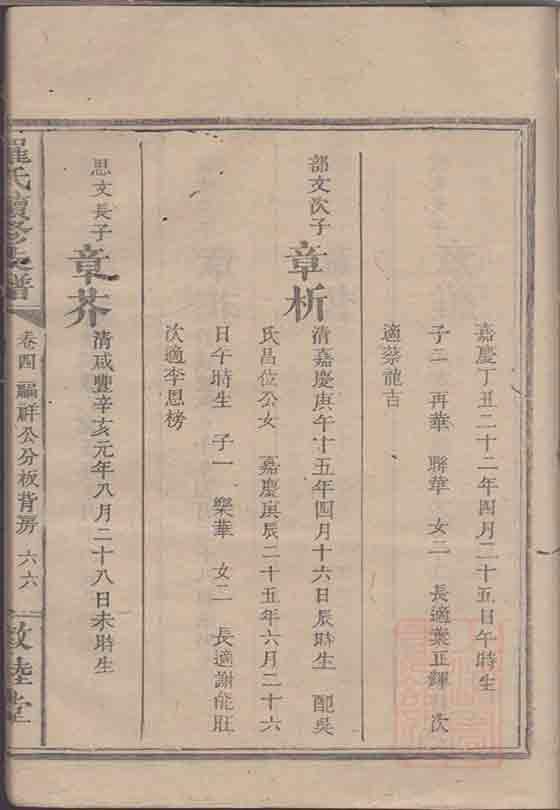 嘉慶丁丑二十二年四月二十五日午時生
子二 再華 聯華 女二 長適葉正輝 次
適蔡龍吉
部文次子
章析
清嘉慶庚午十五年四月十六日辰時生 配吳
氏昌位公女 嘉慶庚辰二十五年六月二十六
日午時生 子一 樂華 女二 長適謝能旺
次適李恩榜
思文長子
章芥
清咸豐辛亥元年八月二十八日未時生
羅氏續修族譜
卷四 福祥公分板背房 六六
敦睦堂